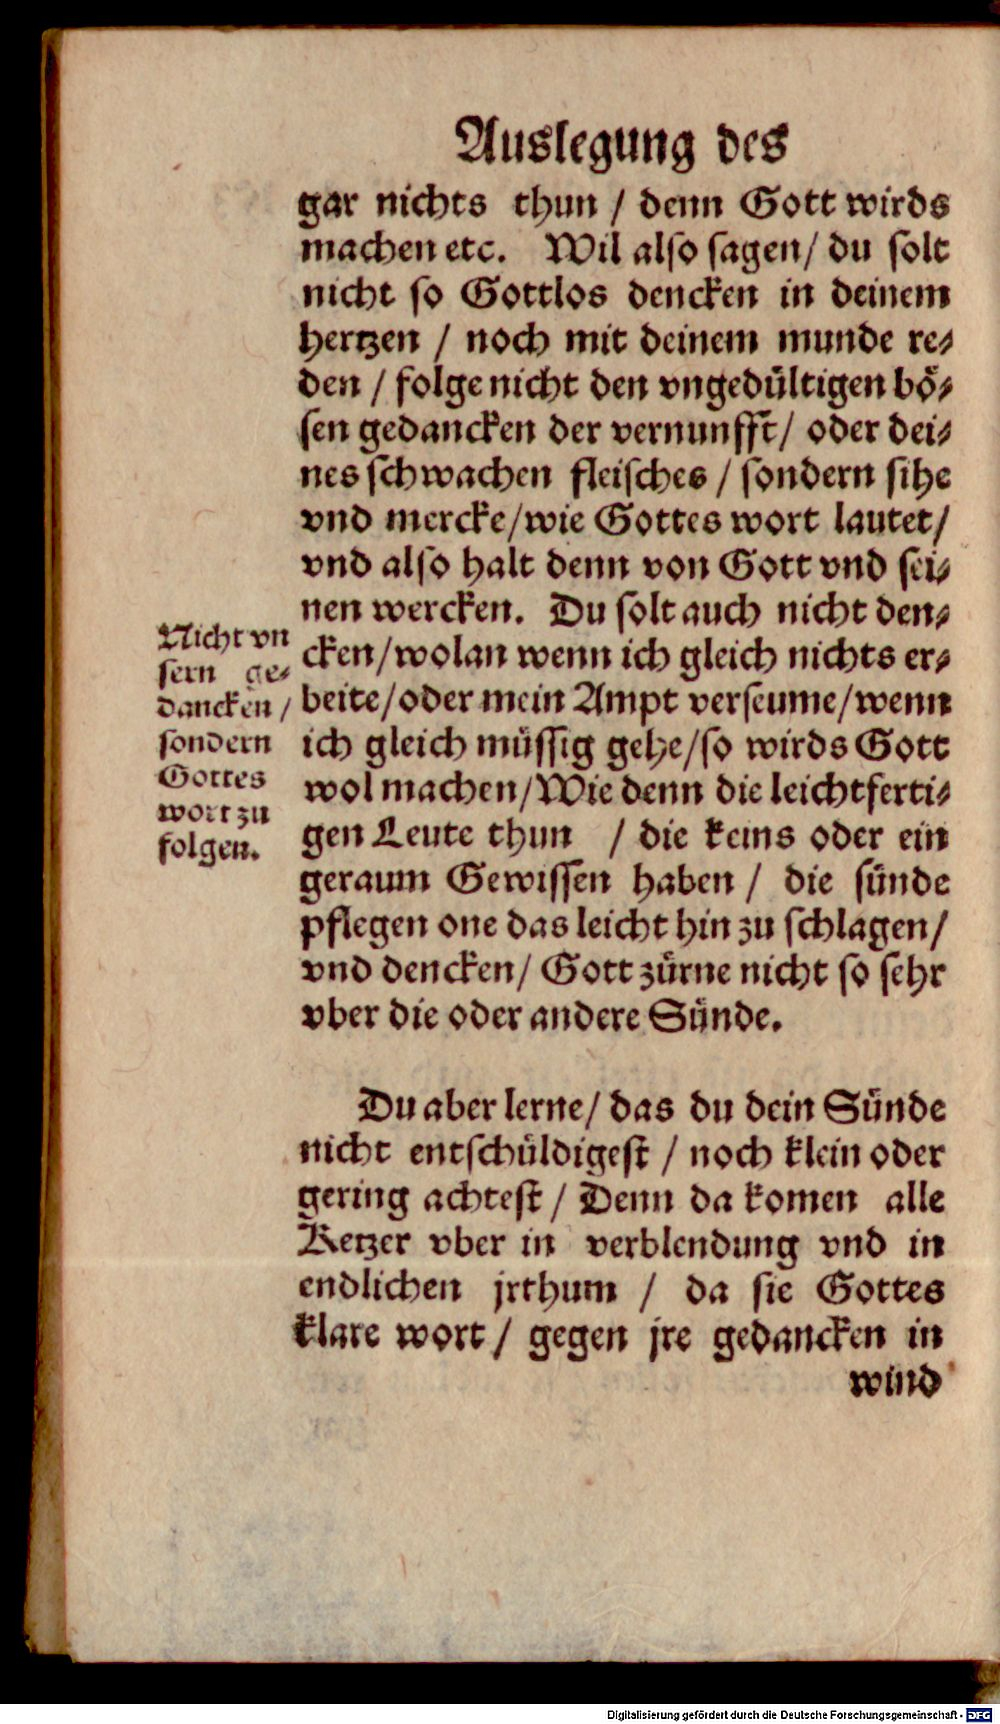 Auslegung des
gar nichts thun / denn Gott wirds
machen etc. Wil also sagen / du solt
nicht so Gottlos dencken in deinem
hertzen / noch mit deinem munde re⸗
den / folge nicht den vngedültigen bö⸗
sen gedancken der vernunfft / oder dei⸗
nes schwachen fleisches / sondern sihe
vnd mercke / wie Gottes wort lautet /
vnd also halt denn von Gott vnd sei⸗
nen wercken. Du solt auch nicht den⸗
cken / wolan wenn ich gleich nichts er⸗
beite / oder mein Ampt verseume / wenn
ich gleich müssig gehe / so wirds Gott
wol machen / Wie denn die leichtferti⸗
gen Leute thun / die keins oder ein
geraum Gewissen haben / die sünde
pflegen one das leicht hin zu schlagen /
vnd dencken / Gott zürne nicht so sehr
vber die oder andere Sünde.
Nicht vn
sern ge⸗
dancken /
sondern
Gottes
wort zu
folgen.
Du aber lerne / das du dein Sünde
nicht entschüldigest / noch klein oder
gering achtest / Denn da komen alle
Ketzer vber in verblendung vnd in
endlichen jrthum / da sie Gottes
klare wort / gegen jre gedancken in
wind
Digitalisierung gefördert durch die Deutsche Forschungsgemeinschaft - DFG